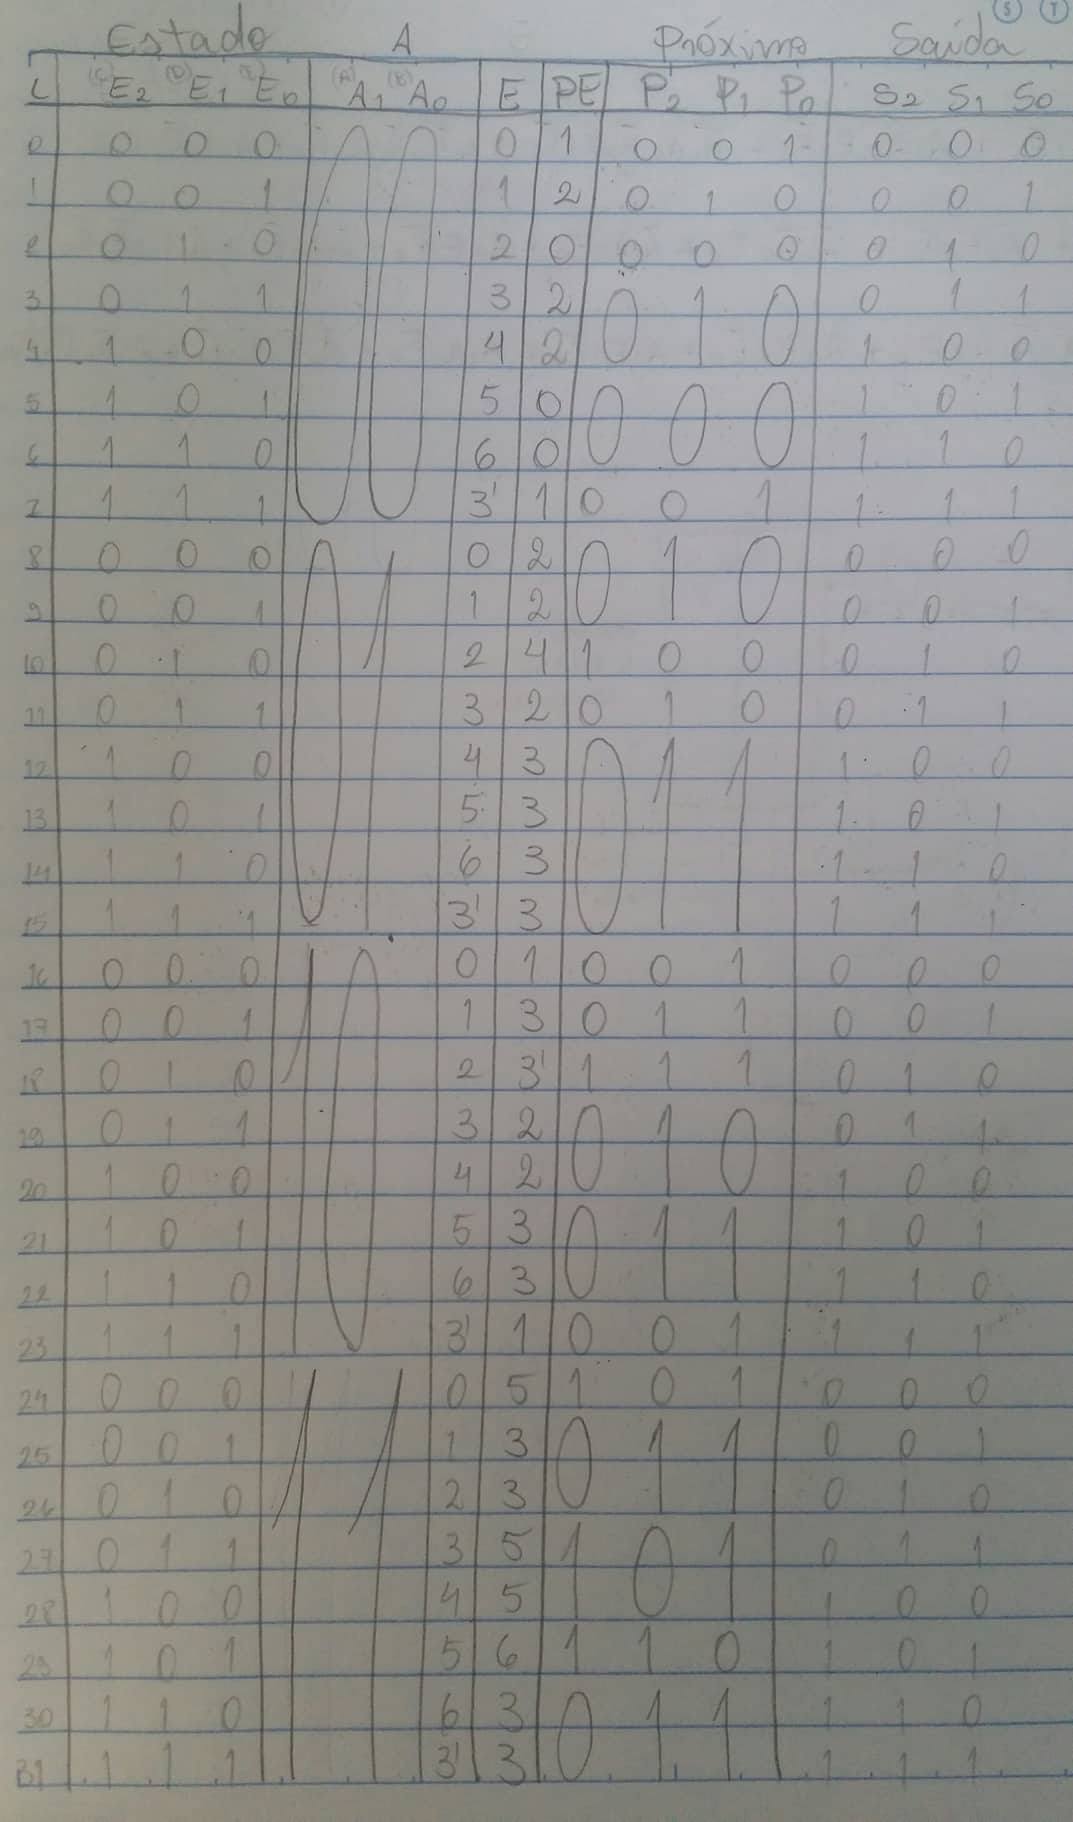 (S) (T)
Estado A Próximo Saída
L (C)E2 (D)E1 (E)E0 (A)A1 (B)A0 E PE P2 P1 P0 S2 S1 S0
0 0 0 0 0 0 0 1 0 0 1 0 0 0
1 0 0 1 1 2 0 1 0 0 0 1
2 0 1 0 2 0 0 0 0 0 1 0
3 0 1 1 3 2 0 1 0 0 1 1
4 1 0 0 4 2 1 0 0
5 1 0 1 5 0 0 0 0 1 0 1
6 1 1 0 6 0 1 1 0
7 1 1 1 3' 1 0 0 1 1 1 1
8 0 0 0 0 1 0 2 0 1 0 0 0 0
9 0 0 1 1 2 0 0 1
10 0 1 0 2 4 1 0 0 0 1 0
11 0 1 1 3 2 0 1 0 0 1 1
12 1 0 0 4 3 0 1 1 1 0 0
13 1 0 1 5 3 1 0 1
14 1 1 0 6 3 1 1 0
15 1 1 1 3' 3 1 1 1
16 0 0 0 1 0 0 1 0 0 1 0 0 0
17 0 0 1 1 3 0 1 1 0 0 1
18 0 1 0 2 3' 1 1 1 0 1 0
19 0 1 1 3 2 0 1 0 0 1 1
20 1 0 0 4 2 1 0 0
21 1 0 1 5 3 0 1 1 1 0 1
22 1 1 0 6 3 1 1 0
23 1 1 1 3' 1 0 0 1 1 1 1
24 0 0 0 1 1 0 5 1 0 1 0 0 0
25 0 0 1 1 3 0 1 1 0 0 1
26 0 1 0 2 3 0 1 0
27 0 1 1 3 5 1 0 1 0 1 1
28 1 0 0 4 5 1 0 0
29 1 0 1 5 6 1 1 0 1 0 1
30 1 1 0 6 3 0 1 1 1 1 0
31 1 1 1 3' 3 1 1 1